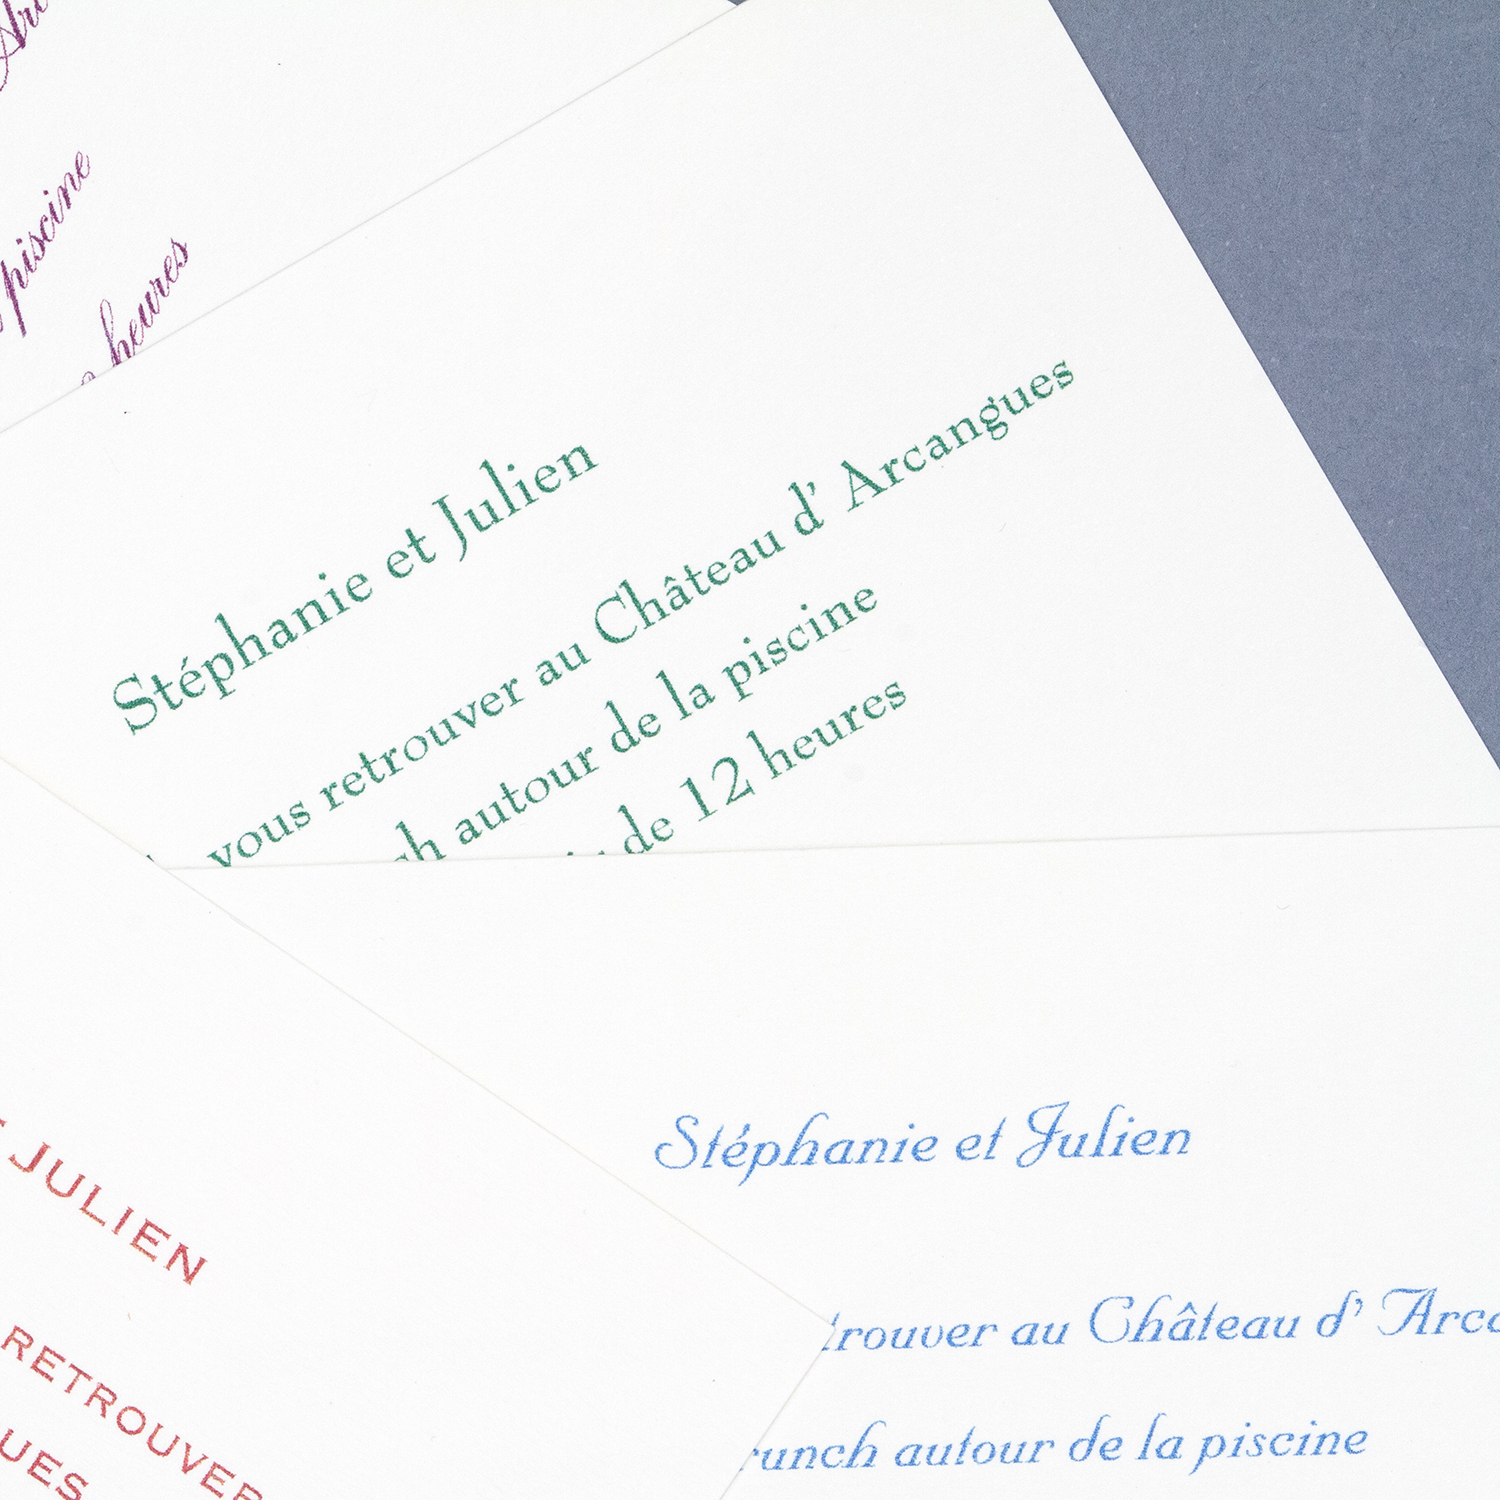 piscine
heures
Stéphanie et Julien
vous retrouver au Château d' Arcangues
autour de la piscine
de 12 heures
JULIEN
RETROUVER
Stéphanie et Julien
au Château d'
autour de la piscine